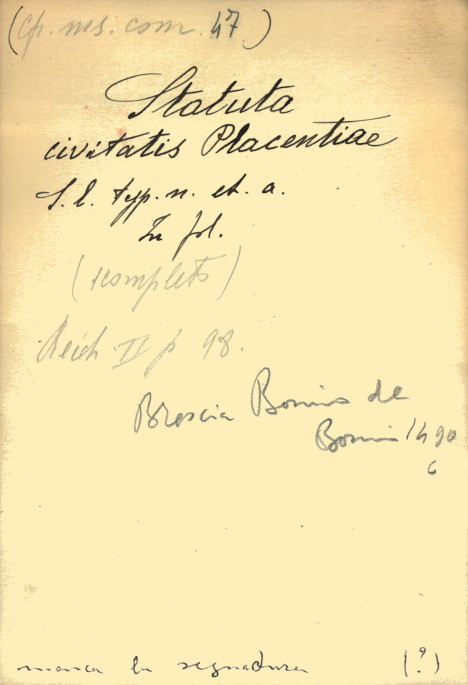 (Cp. ms. com. 47)
Statuta
civitatis Placentiae
S. l. typ. n. et. a.
In fol.
(completo)
Reich. II p 98.
Brescia Boninis de
Boninis 1490
6
manca la segnatura (?)